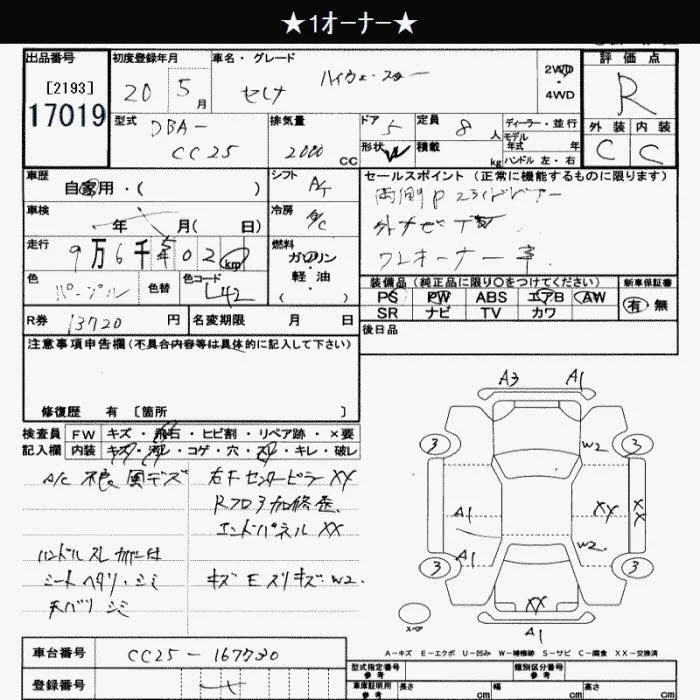 ★1オーナー★
出品番号 初度登録年月 車名・グレード 評価点
[2193] 20 5月 セレナ ハイウェースター 2WD R
17019 4WD
型式 排気量 ドア 定員 ディーラー・並行 外装 内装
DBA- 2000 CC 5 8人 モデル年式 年 C C
CC25 形状 積載 kg ハンドル 左・右
車歴 シフト セールスポイント (正常に機能するものに限ります)
自家用・( ) A/T 両側Pスライドドアー
車検 冷房 外ナビTV
年 月( 日) A/C ワンオーナー車
走行 燃料
9万6千 02 km ガソリン・軽油・( )
色 色替 色コード 装備品 (純正品に限り○をつけてください) 新車保証書
パープル L42 PS PW ABS エアB AW 有 無
SR ナビ TV カワ
R券 13720 円 名変期限 月 日 後日品
注意事項申告欄 (不具合内容等は具体的に記入して下さい)
修復歴 有 [箇所 ]
検査員 FW キズ・飛石・ヒビ割・リペア跡・×要
記入欄 内装 キズ・汚レ・コゲ・穴・スレ・キレ・破レ
A/C 不良 右F センターピラー XX
Rフロア加修歴
エンドパネル XX
ハンドルスレ
シートヘタリ・シミ キズ E スリキズ W2.
天バリ シミ
A3 A1
3 W2 3
A1 XX XX
A1 W2
3 3
XX
スペア A1
A-キズ E-エクボ U-凹み W-補修跡 S-サビ C-腐食 XX-交換済
車台番号 CC25-167730 型式指定番号 参考 類別区分番号 参考
登録番号 車庫証明用 参考 長さ cm 幅 cm 高さ cm